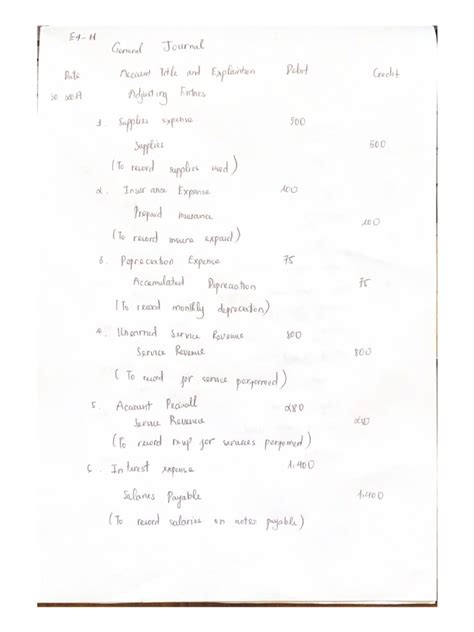 E4-11
General Journal
Date Account Title and Explantion Debit Credit
Adjusting Entries
1. Supplies expense 500
Supplies 500
(To record supplies used)
2. Insurance Expense 100
Prepaid insurance 100
(To record insure expaid)
3. Depreciation Expense 75
Accumulated Depreciation 75
(To record monthly depreciation)
4. Unearned Service Revenue 800
Service Revenue 800
(To record for service performed)
5. Account 280
Service Revenue 280
(To record for services performed)
6. Interest expense 1.400
Salaries Payable 1.400
(To record salaries on notes payable)